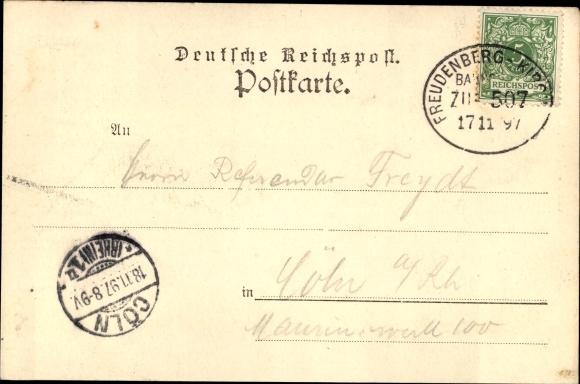 Deutsche Reichspost.
Postkarte.
5
REICHSPOST
FREUDENBERG-KIRC
BA
ZUG 507
17 11 97
An
Herrn Referendar Freydt
in Cöln a/Rh
Mauritiuswall 100
CÖLN
18.11.97.8-9V.
* (RHEIN) 1